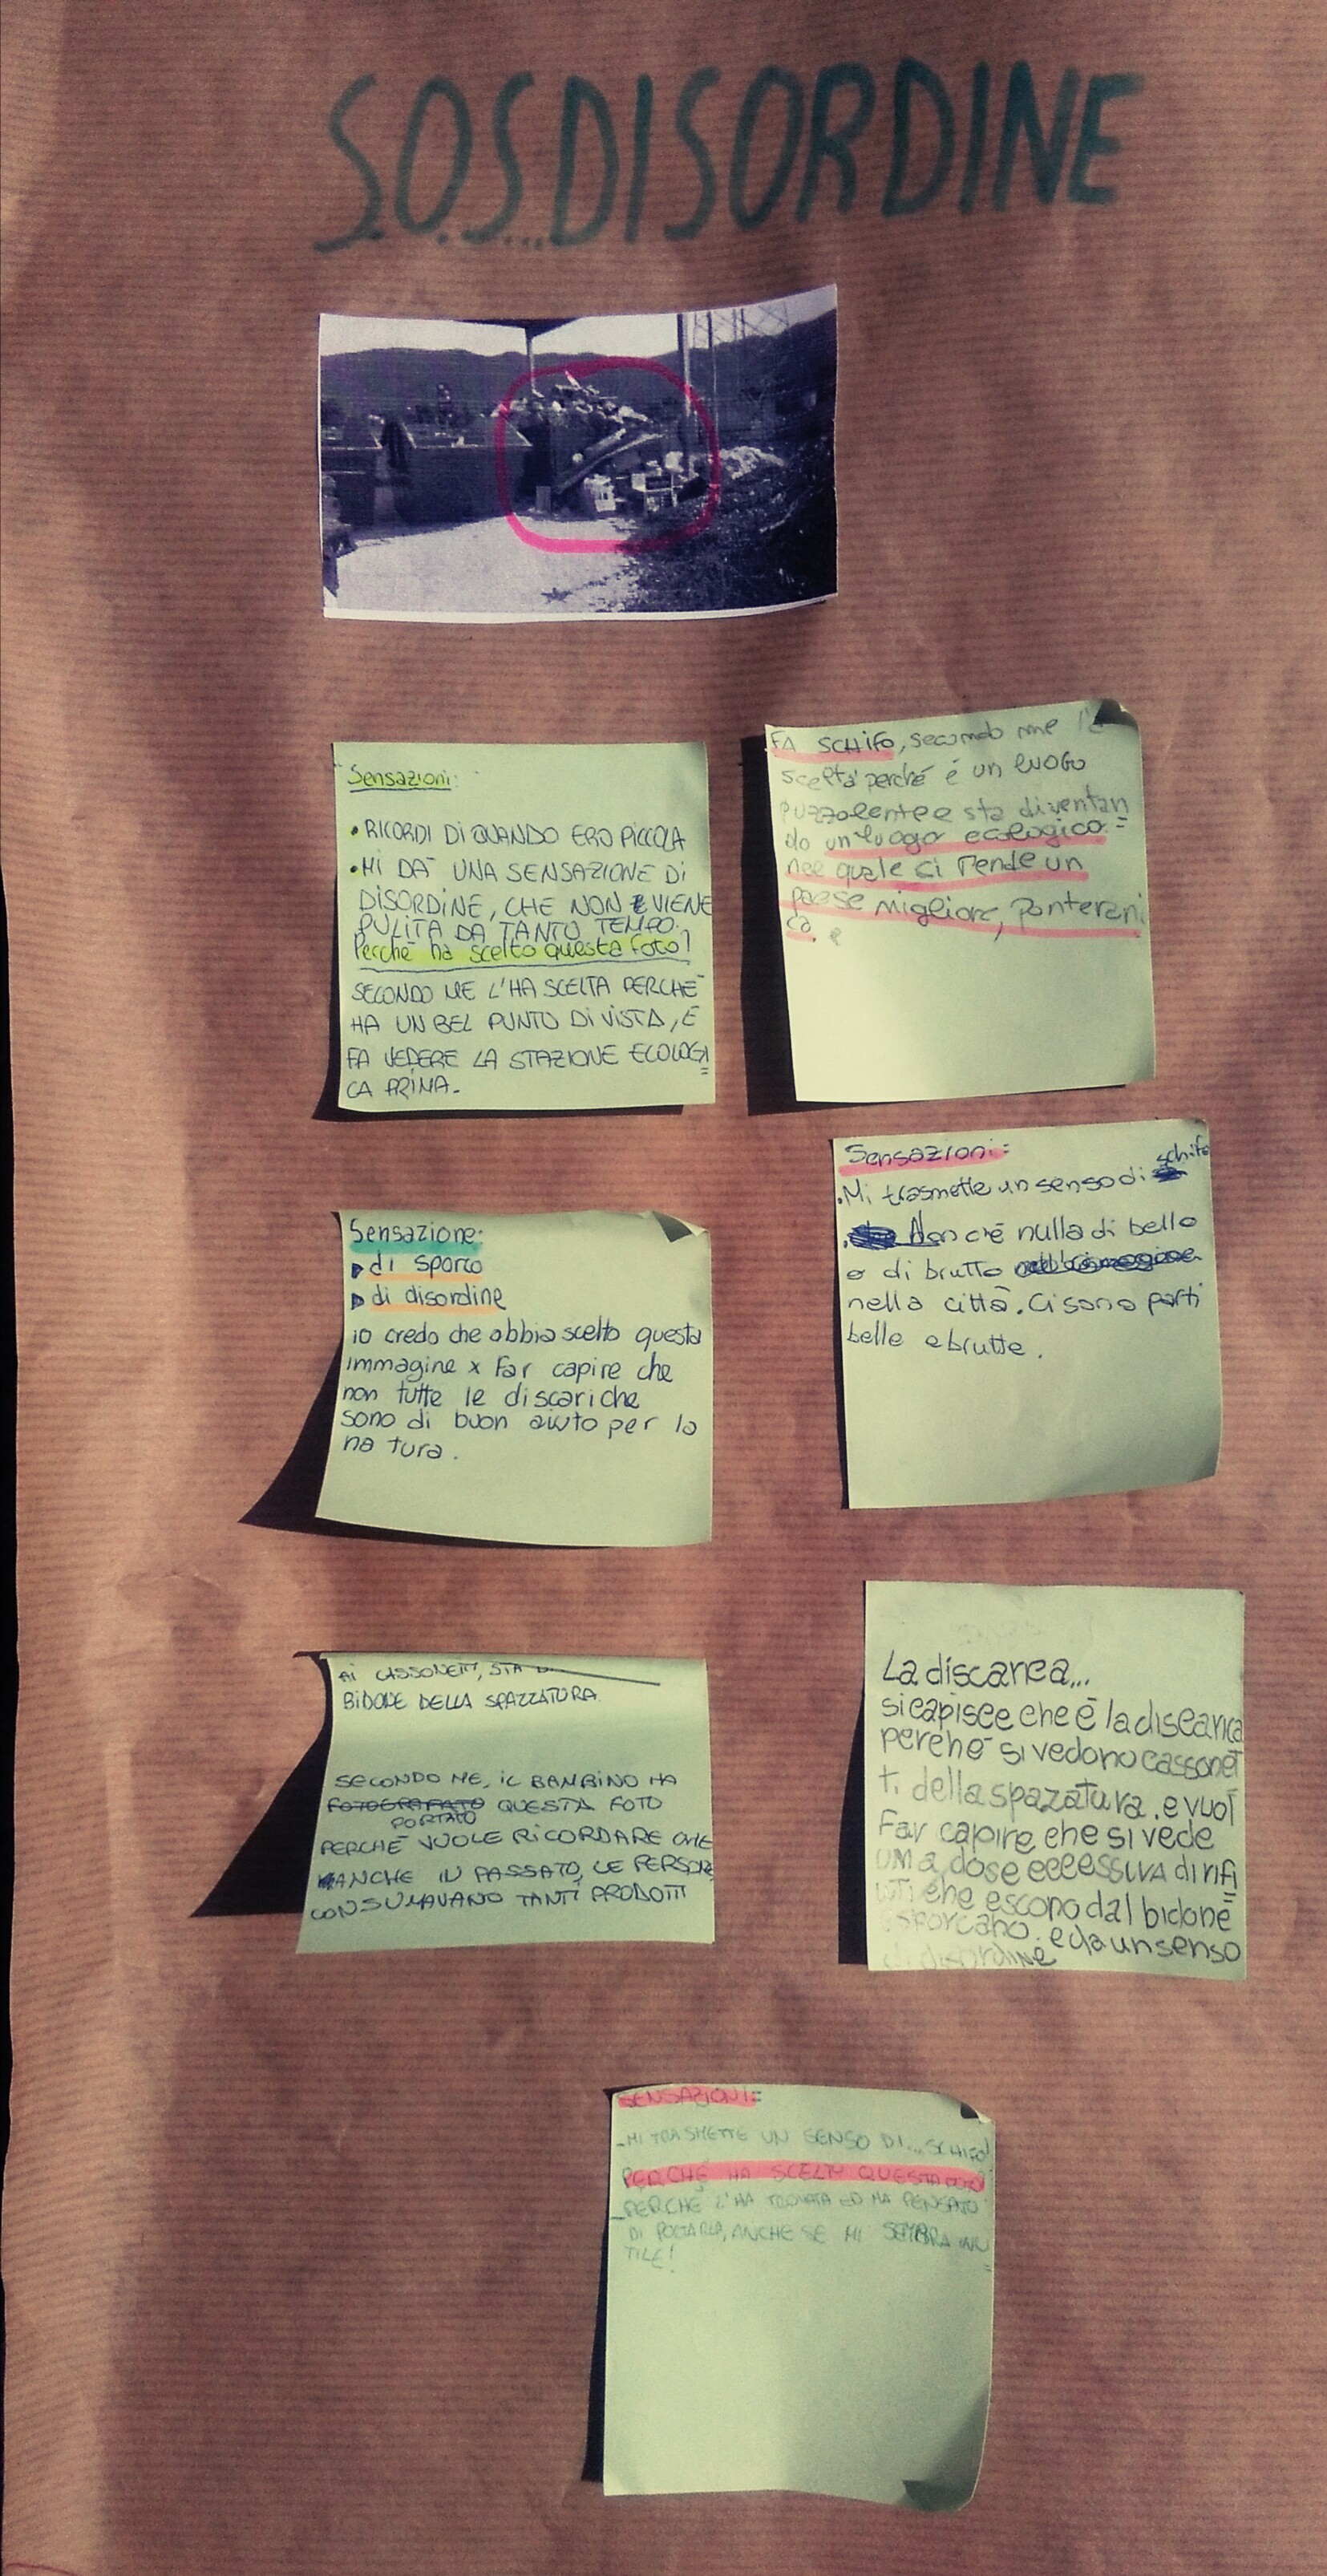 S.O.S....DISORDINE
Sensazioni:
• RICORDI DI QUANDO ERO PICCOLA
• MI DÀ UNA SENSAZIONE DI
DISORDINE, CHE NON VIENE
PULITA DA TANTO TEMPO.
Perchè ha scelto questa foto?
SECONDO ME L'HA SCELTA PERCHÈ
HA UN BEL PUNTO DI VISTA, E
FA VEDERE LA STAZIONE ECOLOGI
CA PRIMA.
FA SCHIFO, secondo me l'à
scelta perché é un luogo
puzzolente e sta diventan
do un luogo ecologico =
nel quale si rende un
paese migliore, Ponterani
ca.
Sensazione:
di sporco
di disordine
io credo che abbia scelto questa
immagine x far capire che
non tutte le discariche
sono di buon aiuto per la
natura.
Sensazioni:
. Mi trasmette un senso di schifo
. Non c'é nulla di bello
o di brutto
nella città. Ci sono parti
belle e brutte.
AI CASSONETTI, STA
BIDONE DELLA SPAZZATURA.
SECONDO ME, IL BAMBINO HA
FOTOGRAFATO QUESTA FOTO
PORTATO
PERCHÈ VUOLE RICORDARE CHE
ANCHE IN PASSATO, LE PERSONE
CONSUMAVANO TANTI PRODOTTI
La discarica...
si capisce che è la discarica
perchè si vedono cassonet
ti della spazatura. e vuol
far capire che si vede
uma dose eccessiva di rifi
uti che escono dal bidone
sporcano. e da un senso
di disordine
SENSAZIONI:
- MI TRASMETTE UN SENSO DI... SCHIFO!
PERCHÈ HA SCELTO QUESTA FOTO?
- PERCHÈ L'HA TROVATA ED HA PENSATO
DI PORTARLA, ANCHE SE MI SEMBRA INU
TILE!